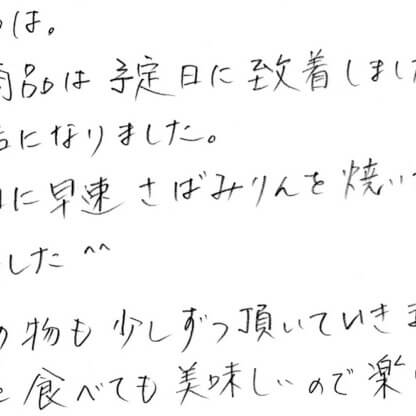 は。
商品は予定日に致着しまし
になりました。
に早速さばみりんを焼い
した^^
の物も少しずつ頂いていきま
食べても美味しいので楽し